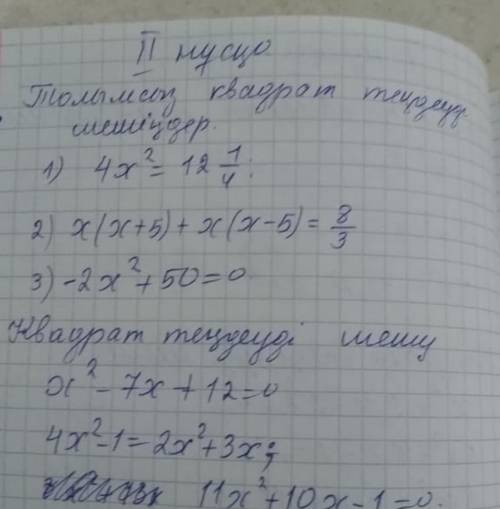 II нусцо
Толымсоң квадрат теңдеуд
шешіңдер.
1) 4x² = 12 1/4;
2) x(x+5) + x(x-5) = 8/3
3) -2x² + 50 = 0
Квадрат теңдеуді шешу
x² - 7x + 12 = 0
4x² - 1 = 2x² + 3x;
11x² + 10x - 1 = 0.